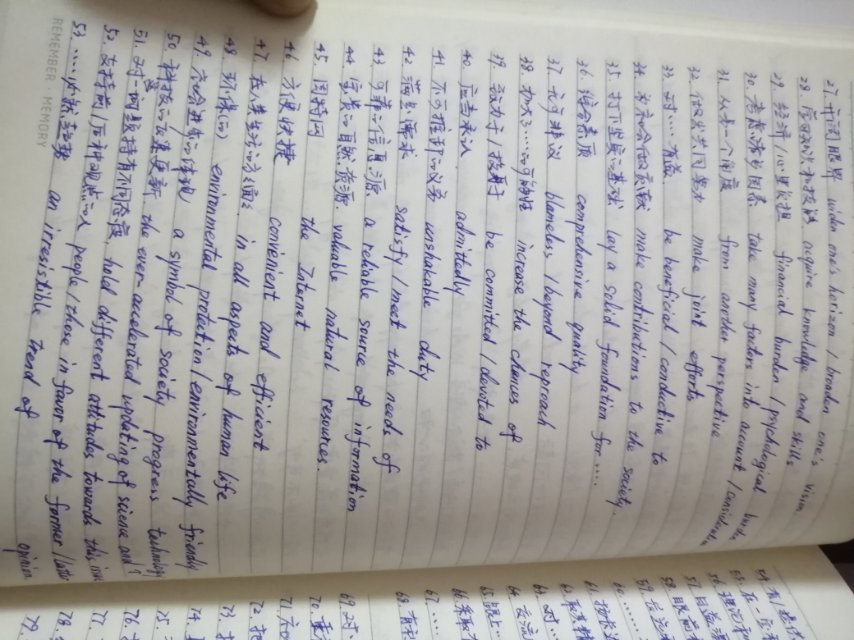 27. 开阔眼界 widen one's horizon / broaden one's vision
28. acquire knowledge and skills
29. 经济/心理负担 financial burden / psychological burden
30. 考虑诸多因素 take many factors into account / consideration
31. 从另一个角度 from another perspective
32. 做出共同努力 make joint efforts
33. 对……有益 be beneficial / conductive to
34. 为社会做贡献 make contributions to the society.
35. 打下坚实的基础 lay a solid foundation for……
36. 综合素质 comprehensive quality
37. 无可 blameless / beyond reproach
38. 加大……的可能性 increase the chances of
39. 致力于/投身于 be committed / devoted to
40. 应当承认 admittedly
41. 不可推卸的义务 unshakable duty
42. 满足需求 satisfy / meet the needs of
43. 可靠的信息源 a reliable source of information
44. 宝贵的自然资源 valuable natural resources.
45. 因特网 the Internet
46. 方便快捷 convenient and efficient
47. 在人类生活的方方面面 in all aspects of human life
48. 环保(的) environmental protection / environmentally friendly
49. 社会进步的体现 a symbol of society progress
50. 科技的飞速更新 the ever-accelerated updating of science and technology
51. 对这一问题持有不同态度 hold different attitudes towards this issue
52. 支持前/后种观点的人 people / those in favor of the former / latter opinion
53. ……的必然趋势 an irresistible trend of
REMEMBER · MEMORY
55.
56.
57.
58.
59.
60. ……
61.
62.
63. 对…
64.
65.
66.
67. ……
68.
69.
70.
71.
72.
73.
74.
75.
76.
77.
78.
79.